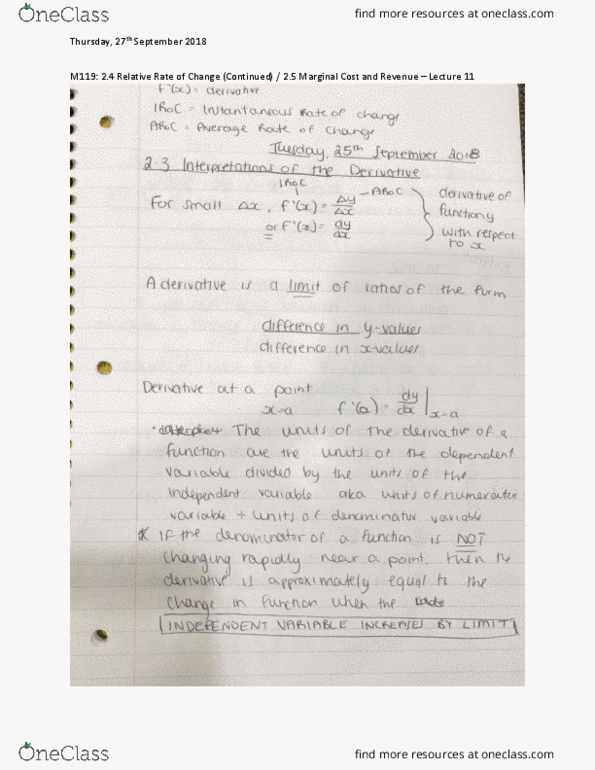 OneClass
find more resources at oneclass.com
Thursday, 27th September 2018
M119: 2.4 Relative Rate of Change (Continued) / 2.5 Marginal Cost and Revenue – Lecture 11
f'(x) = derivative
IRoC = Instantaneous Rate of change
ARoC = Average Rate of Change
Tuesday, 25th September 2018
2.3 Interpretations of the Derivative
IRoC
For small Δx, f'(x) = Δy/Δx - ARoC
or f'(x) = dy/dx
derivative of
function y
with respect
to x
A derivative is a limit of ratios of the form
difference in y-values
difference in x-values
Derivative at a point
x=a f'(a) = dy/dx |x=a
The units of the derivative of a
function are the units of the dependent
variable divided by the units of the
independent variable aka units of numerator
variable ÷ units of denominator variable
* IF the denominator of a function is NOT
changing rapidly near a point, then the
derivative is approximately equal to the
change in function when the
INDEPENDENT VARIABLE INCREASES BY 1 UNIT
OneClass
find more resources at oneclass.com